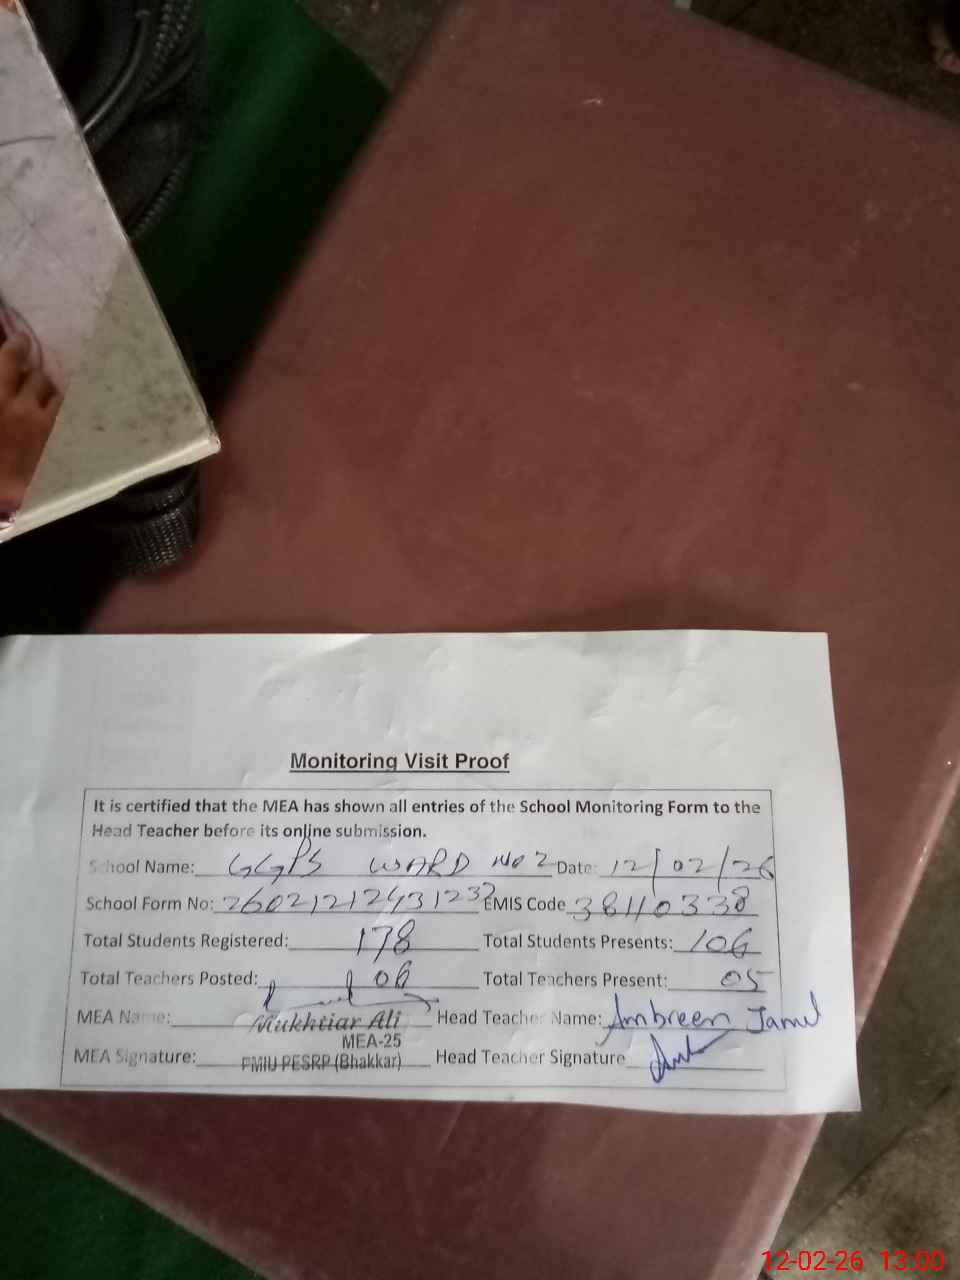 Monitoring Visit Proof
It is certified that the MEA has shown all entries of the School Monitoring Form to the
Head Teacher before its online submission.
School Name: GGPS WARD No 2 Date: 12/02/26
School Form No: 260212124931237 EMIS Code 38110338
Total Students Registered: 178 Total Students Presents: 106
Total Teachers Posted: 06 Total Teachers Present: 05
MEA Name: Mukhtiar Ali Head Teacher Name: Ambreen Jamil
MEA-25
MEA Signature: PMIU PESRP (Bhakkar) Head Teacher Signature
12-02-26 13:00